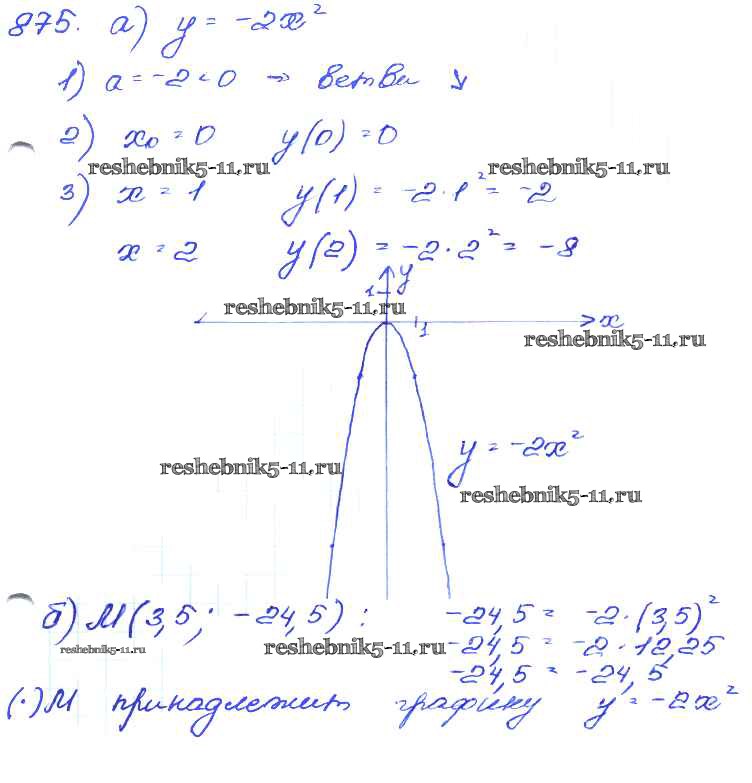 875. а) y = -2x²
1) a = -2 < 0 → ветви ↘
2) x₀ = 0 y(0) = 0
reshebnik5-11.ru reshebnik5-11.ru
3) x = 1 y(1) = -2·1² = -2
x = 2 y(2) = -2·2² = -8
y
1
reshebnik5-11.ru
1 x
reshebnik5-11.ru
y = -2x²
reshebnik5-11.ru
reshebnik5-11.ru
б) М(3,5; -24,5): -24,5 = -2·(3,5)²
reshebnik5-11.ru reshebnik5-11.ru -24,5 = -2·12,25
-24,5 = -24,5
(·)М принадлежит графику y = -2x²